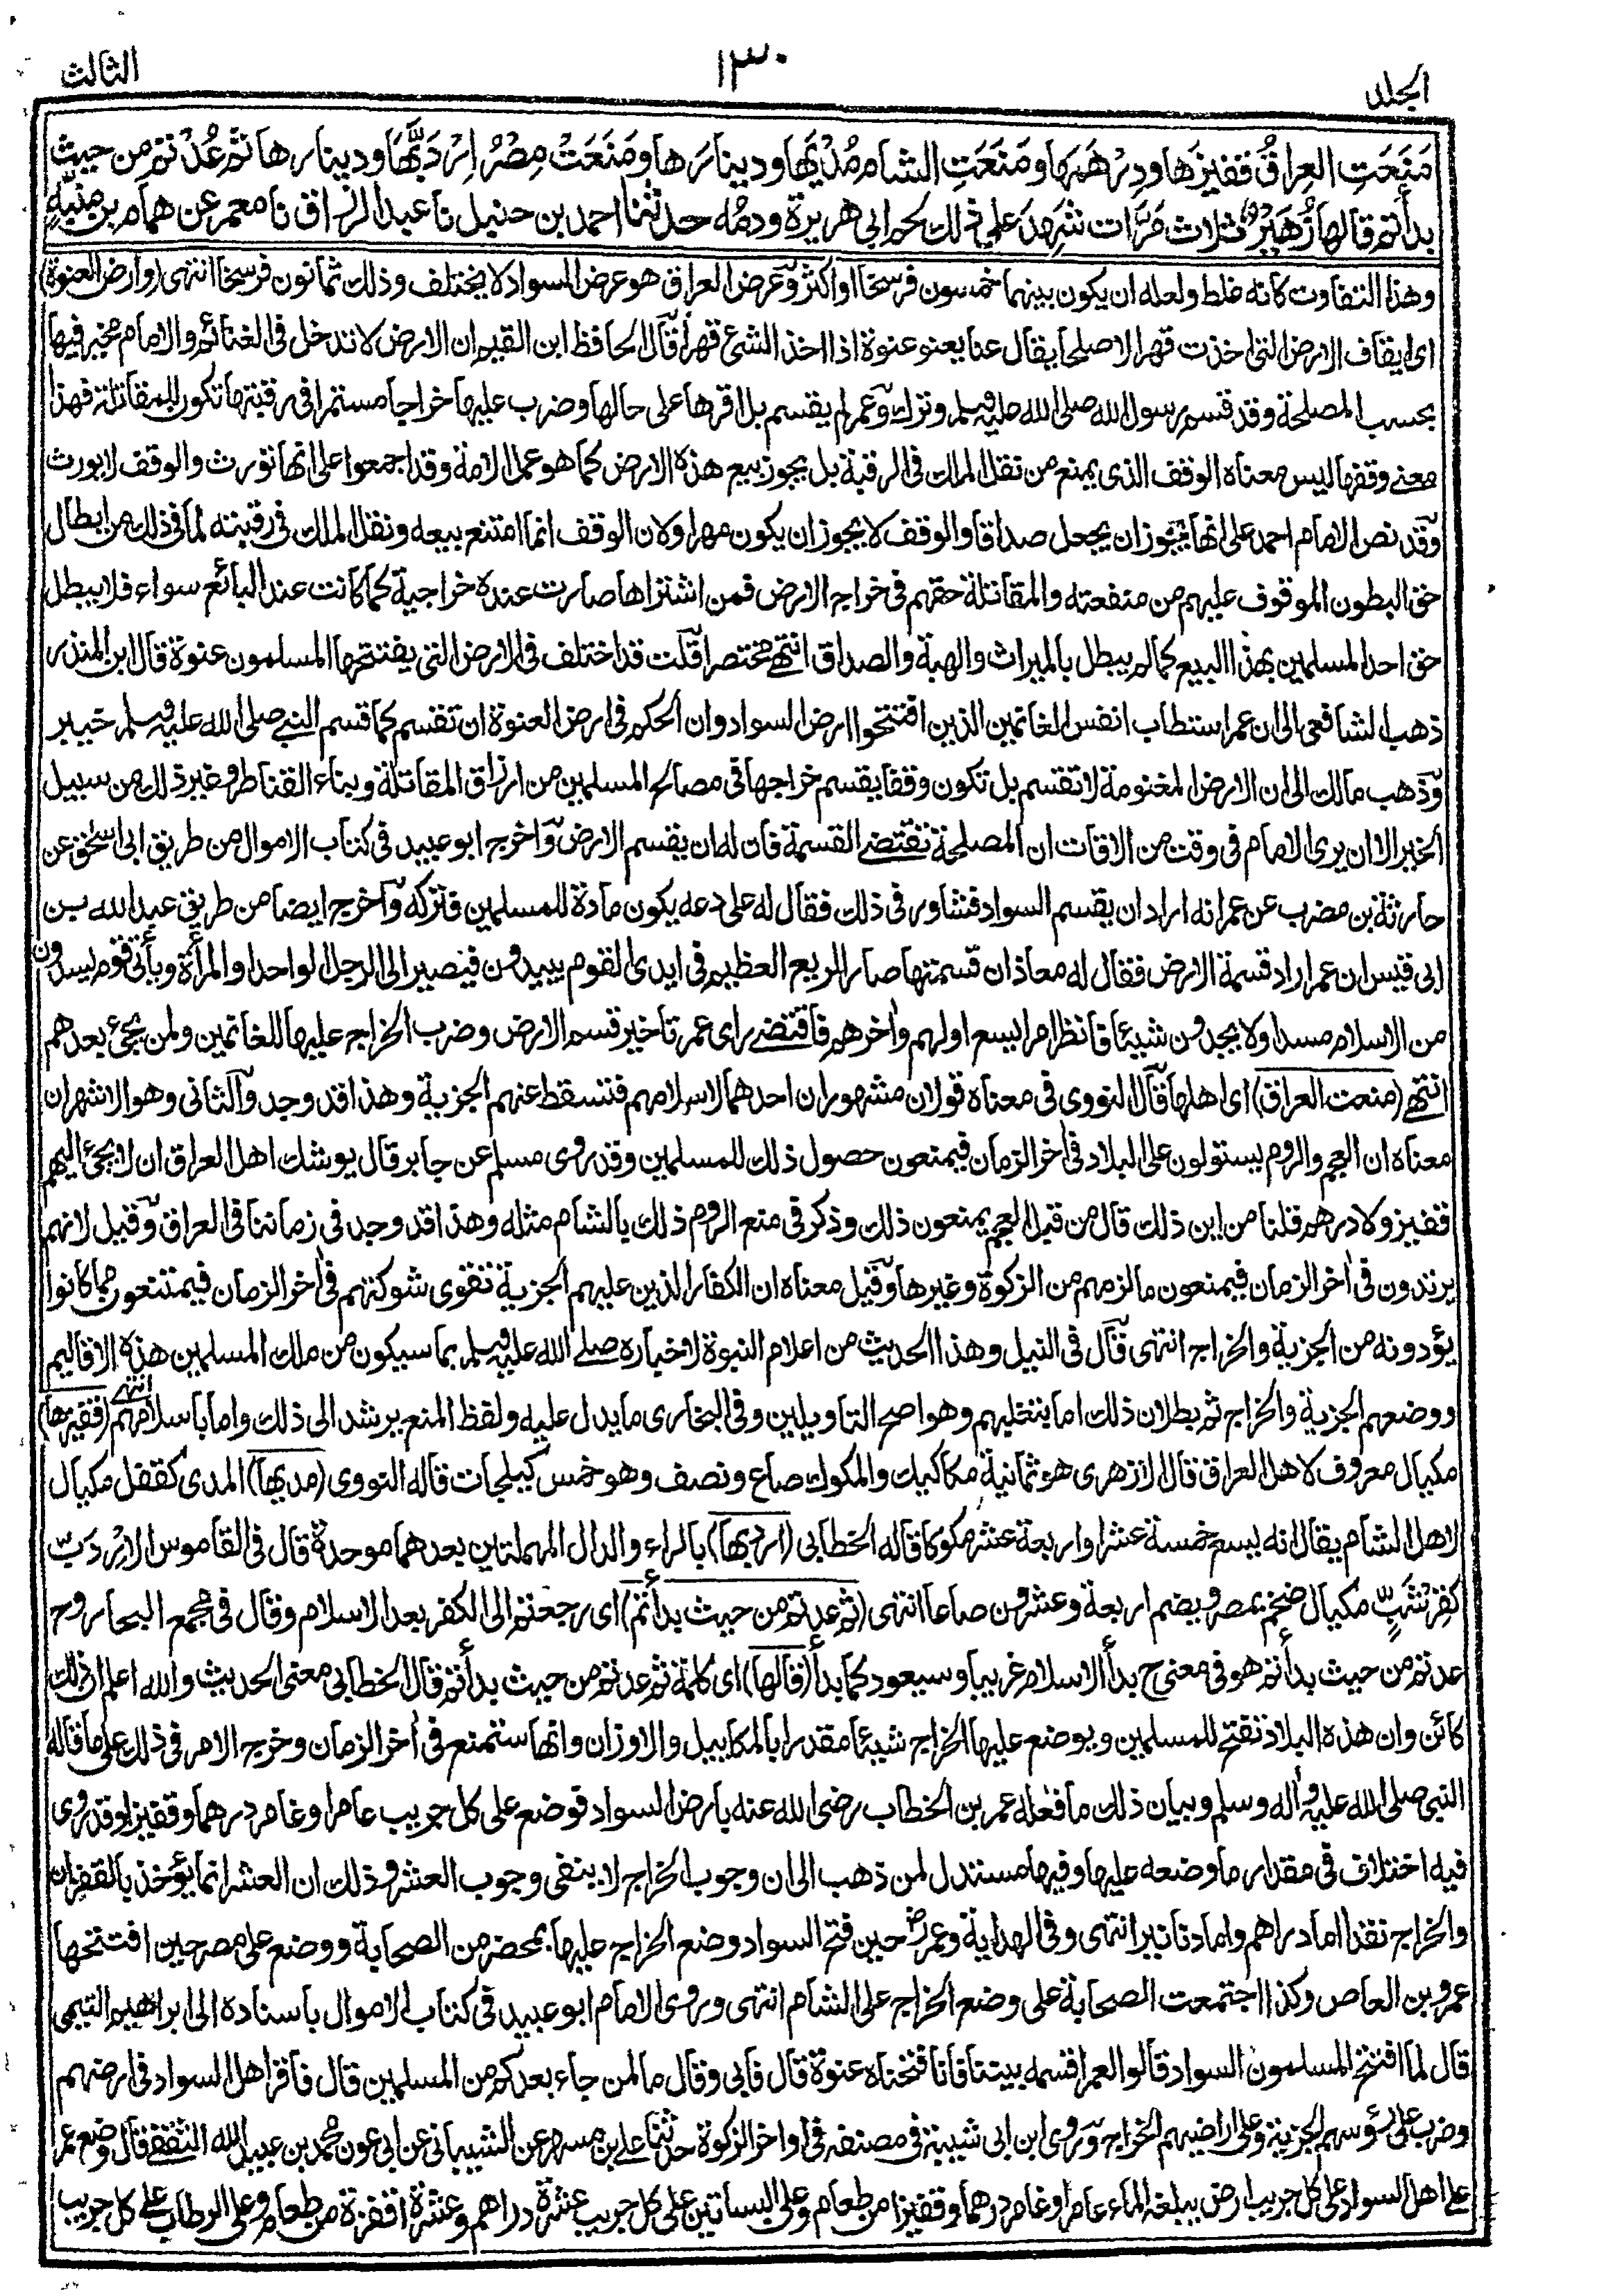 المجلد
١٣٠
الثالث
مَنَعَتِ العِراقُ قفيزَها ودِرْهَمَها ومَنَعَتِ الشام مُدْيَها ودينارَها ومَنَعَتْ مِصْرُ اِرْدَبَّهَا ودينارها ثم عُدْتم من حيث
بدأتم قالها زُهَيْرٌ ثلاث مَرَّات شَهِدَ على ذلك لحم ابى هريرة ودمُه حدثنا احمد بن حنبل نا عبد الرزاق نا معمر عن همام بن منبّه
وهذا التفاوت كانه غلط ولعله ان يكون بينهما خمسون فرسخا او اكثر وعرض العراق هو عرض السواد لا يختلف وذلك ثمانون فرسخا انتهى (وارض العنوة)
اى ايقاف الارض التى اخذت قهرا لا صلحا يقال عنا يعنو عنوة اذا اخذ الشئ قهرا قال الحافظ ابن القيم ان الارض لا تدخل فى الغنائم والامام مخير فيها
بحسب المصلحة وقد قسم رسول الله صلى الله عليه وسلم وترك وعمر لم يقسم بل اقرها على حالها وضرب عليها خراجا مستمرا فى رقبتها تكون للمقاتلة فهذا
معنے وقفها ليس معناه الوقف الذى يمنع من نقل الملك فى الرقبة بل يجوز بيع هذه الارض كما هو عمل الامة وقد اجمعوا على انها تورث والوقف لا يورث
وقد نص الامام احمد على انها يجوز ان يجعل صداقا والوقف لا يجوز ان يكون مهرا ولان الوقف انما امتنع بيعه ونقل الملك فى رقبته لما فى ذلك من ابطال
حق البطون الموقوف عليهم من منفعته والمقاتلة حقهم فى خراج الارض فمن اشتراها صارت عنده خراجية كما كانت عند البائع سواء فلا يبطل
حق احد المسلمين بهذا البيع كما لم يبطل بالميراث والهبة والصداق انتهے مختصرا قلت قد اختلف فى الارض التى يفتتحها المسلمون عنوة قال ابن المنذر
ذهب الشافعى الى ان عمر استطاب انفس الغانمين الذين افتتحوا ارض السواد وان الحكم فى ارض العنوة ان تقسم كما قسم النبے صلى الله عليه وسلم خيبر
وذهب مالك الى ان الارض المغنومة لا تقسم بل تكون وقفا يقسم خراجها فى مصالح المسلمين من ارزاق المقاتلة وبناء القناطر وغير ذلك من سبيل
الخير الا ان يرى الامام فى وقت من الاقات ان المصلحة تقتضے القسمة فان له ان يقسم الارض واخرج ابو عبيد فى كتاب الاموال من طريق ابى اسحٰق عن
حارثة بن مضرب عن عمر انه اراد ان يقسم السواد فشاور فى ذلك فقال له على دعه يكون مادة للمسلمين فتركه واخرج ايضا من طريق عبد الله بن
ابى قيس ان عمر اراد قسمة الارض فقال له معاذ ان قسمتها صار الريع العظيم فى ايدى القوم يبيدون فيصير الى الرجل الواحد او المرأة ويأتى قوم يسدون
من الاسلام مسدا ولا يجدون شيئا فانظر امرا يسع اولهم واٰخرهم فاقتضے راى عمر تاخير قسم الارض وضرب الخراج عليها للغانمين ولمن يجئ بعدهم
انتهے (منعت العراق) اى اهلها قال النووى فى معناه قولان مشهوران احدهما لاسلامهم فتسقط عنهم الجزية وهذا قد وجد والثانى وهو الاشهر ان
معناه ان العجم والروم يستولون على البلاد فى اٰخر الزمان فيمنعون حصول ذلك للمسلمين وقد روى مسلم عن جابر قال يوشك اهل العراق ان لا يجئ اليهم
قفيز ولا درهم قلنا من اين ذلك قال من قبل العجم يمنعون ذلك وذكر فى منع الروم ذلك بالشام مثله وهذا قد وجد فى زماننا فى العراق وقيل لانهم
يرتدون فى اٰخر الزمان فيمنعون ما لزمهم من الزكوة وغيرها وقيل معناه ان الكفار الذين عليهم الجزية تقوى شوكتهم فى اٰخر الزمان فيمتنعون مما كانوا
يؤدونه من الجزية والخراج انتهى قال فى النيل وهذا الحديث من اعلام النبوة لاخباره صلے الله عليه وسلم بما سيكون من ملك المسلمين هذه الاقاليم
ووضعهم الجزية والخراج ثم بطلان ذلك اما بتغلبهم وهو اصح التاويلين وفى البخارى ما يدل عليه ولفظ المنع يرشد الى ذلك واما باسلامهم انتهے (قفيزها)
مكيال معروف لاهل العراق قال الازهرى هو ثمانية مكاكيك والمكوك صاع ونصف وهو خمس كيلجات قاله النووى (مديها) المدى كقفل مكيال
لاهل الشام يقال انه يسع خمسة عشر او اربعة عشر مكوكا قاله الخطابى (اردبها) بالراء والدال المهملتين بعدهما موحدة قال فى القاموس الاِرْدَبّ
كقِرْشَبّ مكيال ضخم بمصر ويضم اربعة وعشرون صاعا انتهى (ثم عدتم من حيث بدأتم) اى رجعتم الى الكفر بعد الاسلام وقال فى مجمع البحار وح
عدتم من حيث بدأتم هو فى معنى ح بدأ الاسلام غريبا وسيعود كما بدأ (قالها) اى كلمة ثم عدتم من حيث بدأتم قال الخطابى معنى الحديث والله اعلم ان ذلك
كائن وان هذه البلاد تفتح للمسلمين ويوضع عليها الخراج شيئا مقدرا بالمكاييل والاوزان وانها ستمنع فى اٰخر الزمان وخرج الامر فى ذلك على ما قاله
النبى صلى الله عليه واٰله وسلم وبيان ذلك ما فعله عمر بن الخطاب رضى الله عنه بارض السواد فوضع على كل جريب عامرا وغامر درهما وقفيزا وقد روى
فيه اختلاف فى مقدار ما وضعه عليها وفيها مستدل لمن ذهب الى ان وجوب الخراج لا ينفى وجوب العشر وذلك ان العشر انما يؤخذ بالقفزان
والخراج نقدا اما دراهم واما دنانير انتهى وفى الهداية وعمرؓ حين فتح السواد وضع الخراج عليها بمحضر من الصحابة ووضع على مصر حين افتتحها
عمرو بن العاص وكذا اجتمعت الصحابة على وضع الخراج على الشام انتهى وروى الامام ابو عبيد فى كتاب الاموال باسناده الى ابراهيم التيمى
قال لما افتتح المسلمون السواد قالوا لعمر اقسمه بيننا فانا فتحناه عنوة قال فابى وقال ما لمن جاء بعدكم من المسلمين قال فاقر اهل السواد فى ارضهم
وضرب على رؤسهم الجزية وعلى اراضيهم الخراج وروى ابن ابى شيبة فى مصنفه فى اواخر الزكوة حدثنا على بن مسهر عن الشيبانى عن ابى عون محمد بن عبيد الله الثقفے قال وضع عمر
على اهل السواد على كل جريب ارض يبلغه الماء عامر او غامر درهما وقفيزا من طعام وعلى البساتين على كل جريب عشرة دراهم وعشرة اقفزة من طعام وعلى الرطاب على كل جريب